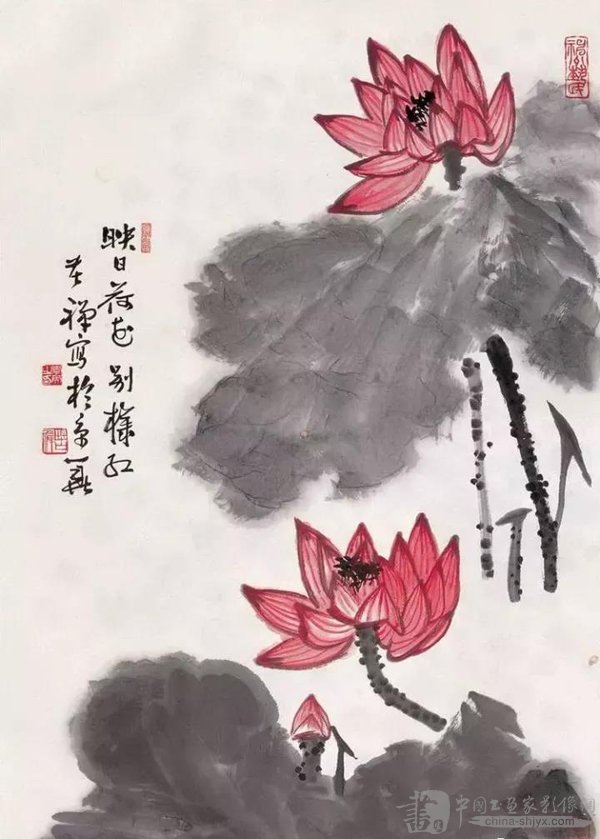 映日荷花别样红
苦禅写於京华
中国书画家影像网
china-shjyx.com